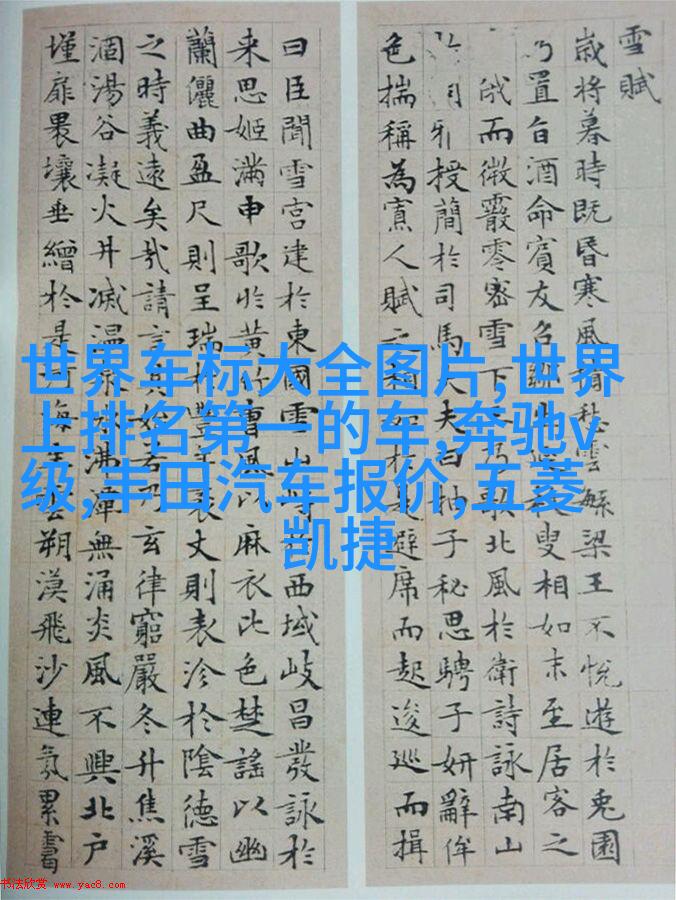 世界车标大全图片,世界
上排名第一的车,奔驰v
级,丰田汽车报价,五菱
凯捷
雪賦
歲將暮時既昏寒風積愁雲繁梁王不悅遊於兔園
乃置旨酒命賓友召延叟相如末至居客之
俄而微霰零密雪下乃歌北風於衛詩詠南山
授簡於司馬大夫曰抽子秘思騁子妍辭侔
色揣稱為寡人賦之相如於是避席而起逡巡而揖
曰臣聞雪宮建於東國雪山峙於西域岐昌發詠於
来思姬滿申歌於黃竹曹風以麻衣比色楚謠以幽
蘭儷曲盈尺則呈瑞於豐年袤丈則表沴於陰德雪
之時義遠矣哉請言其始若乃玄律窮嚴冬升焦溪
涸湯谷凝火井滅溫泉冰沸潭無涌炎風不興北户
墐扉壤垂繒於是河海生雲朔漠飛沙連氛累靄
书法欣赏 www.yac8.com